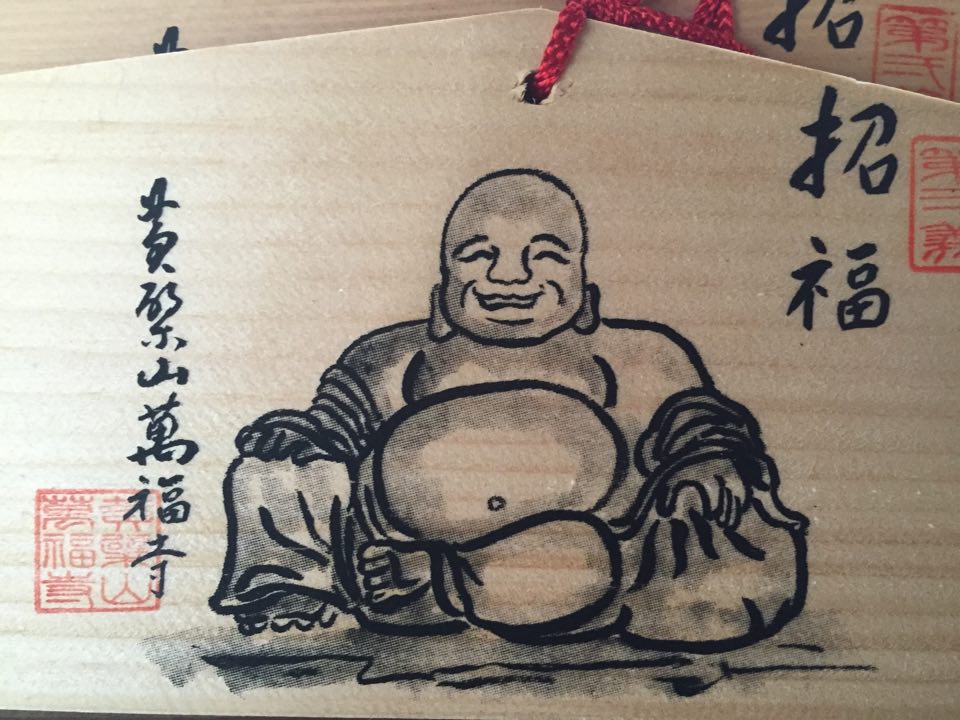 招福
黄檗山萬福寺
黄檗山
萬福寺
招
第弐